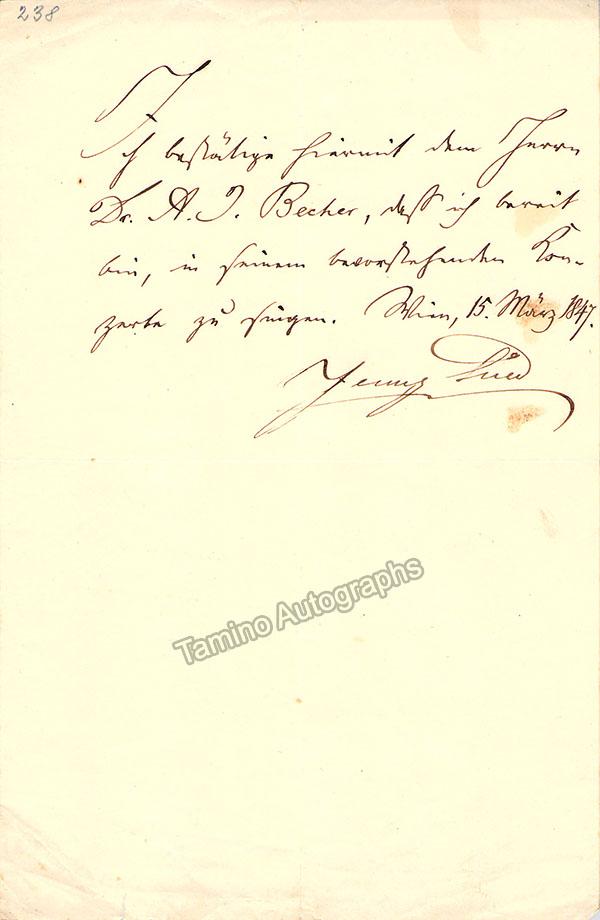 238
Ich bestätige hiermit dem Herrn
Dr. A. J. Becher, daß ich bereit
bin, in seinem bevorstehenden Kon-
zerte zu singen. Wien, 15. März 1847.
Jenny Lind
Tamino Autographs